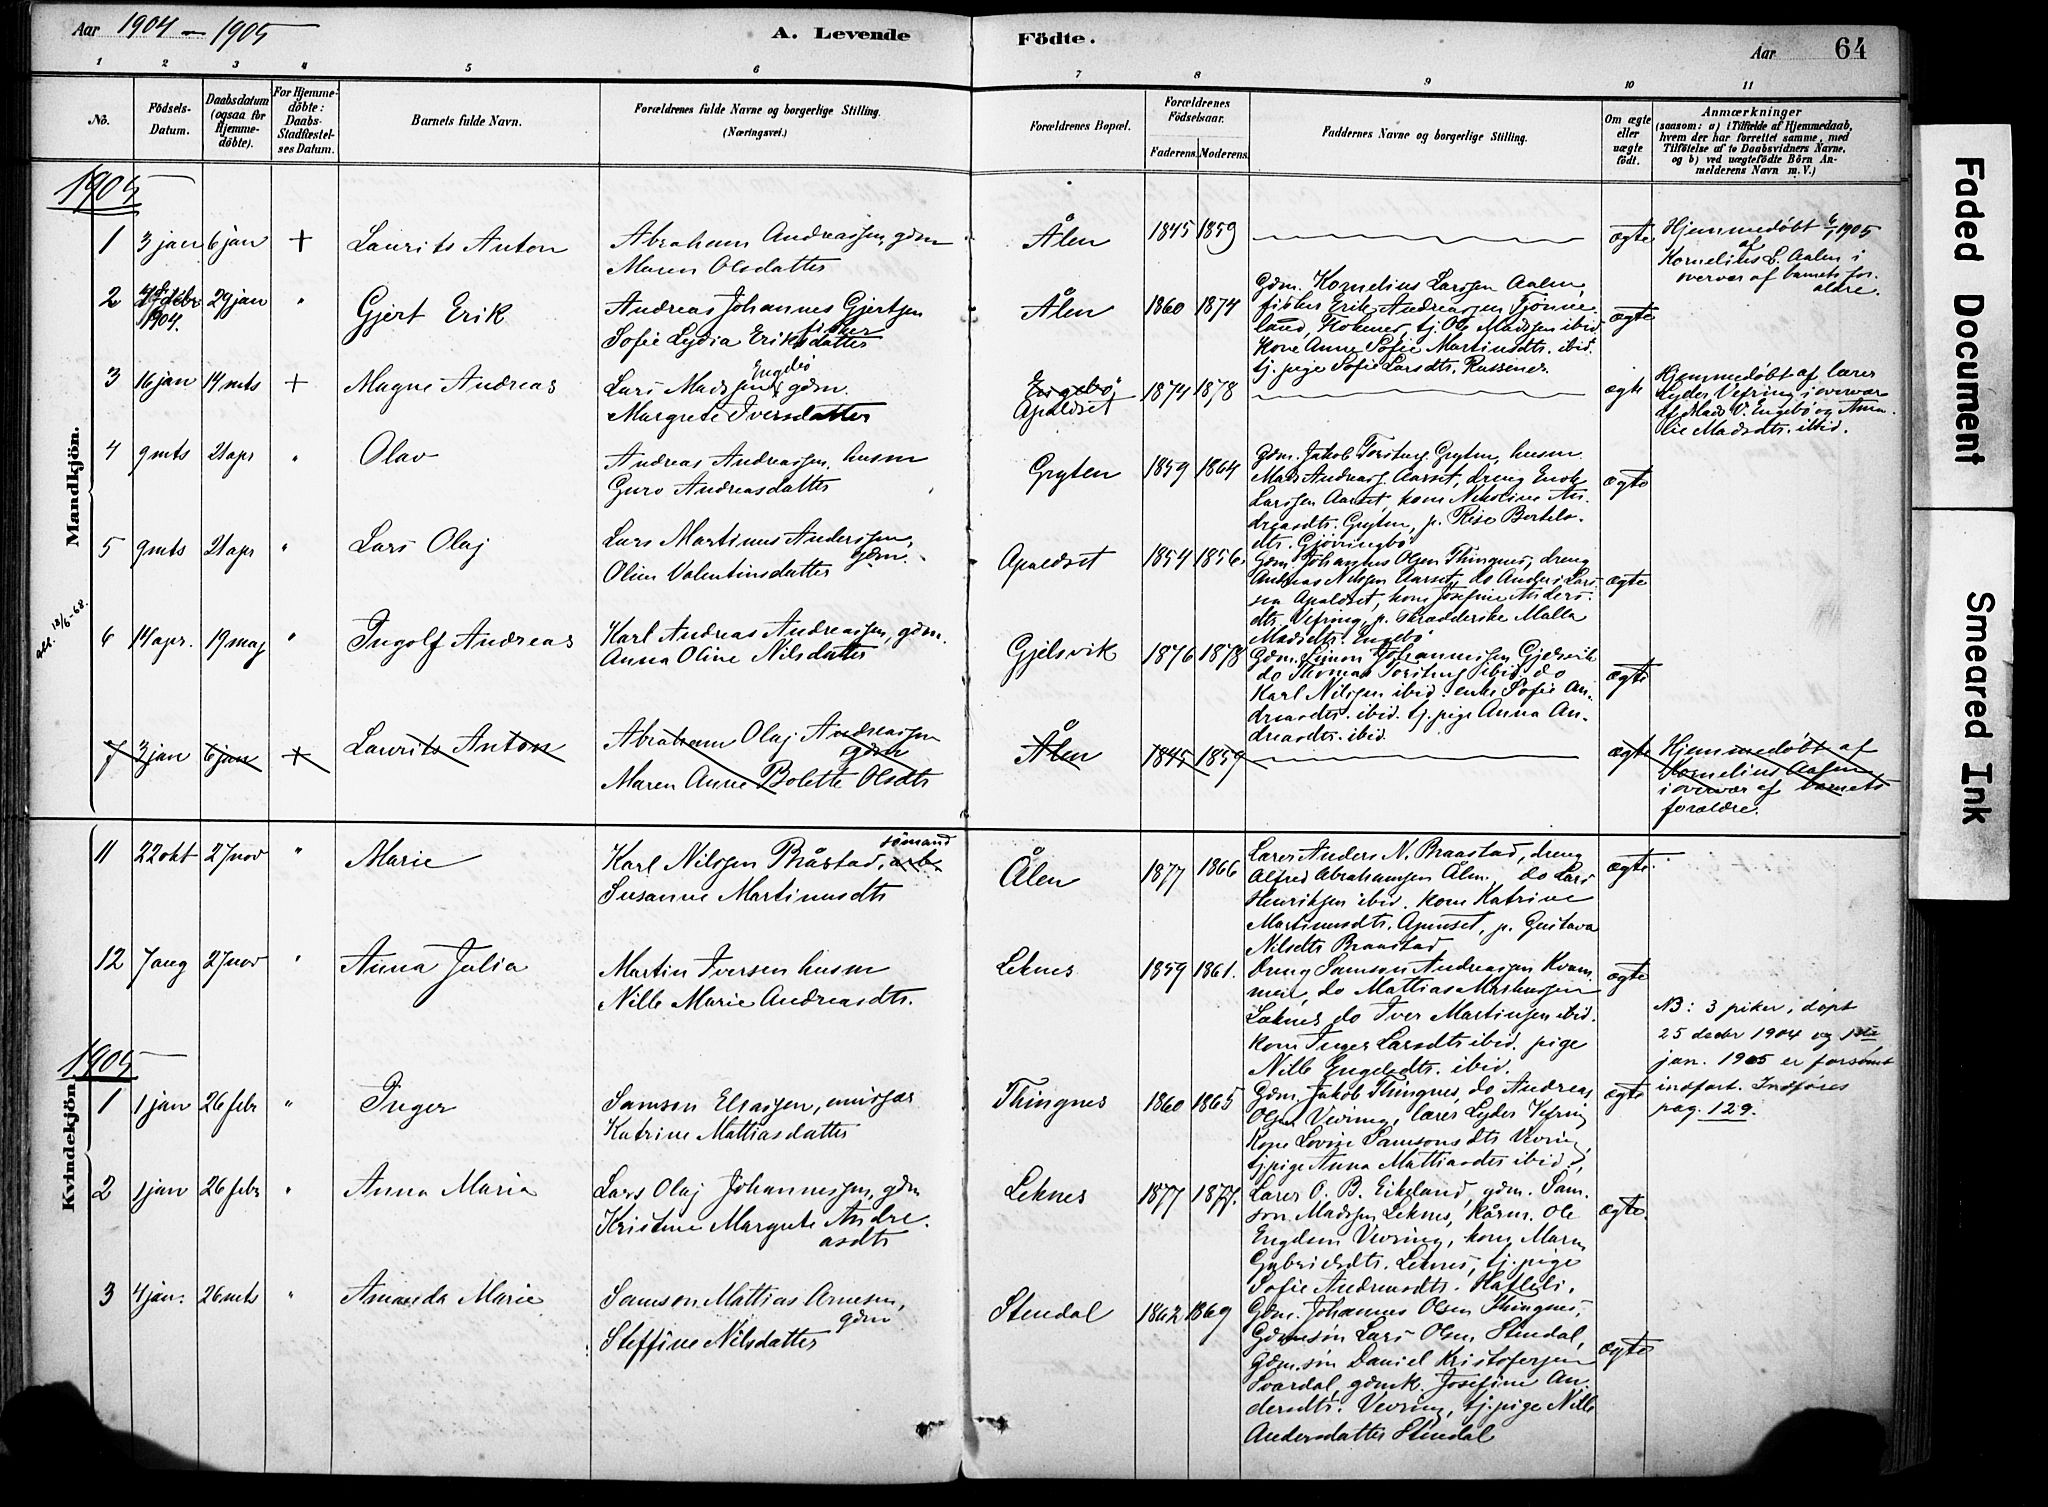 Aar 1904 - 1905
A. Levende Födte.
Aar 64
1 2 3 4 5 6 7 8 9 10 11
No.
Födsels-Datum.
Daabsdatum (ogsaa for Hjemme-döbte).
For Hjemme-döbte: Daabs-Stadfæstel-ses Datum.
Barnets fulde Navn.
Forældrenes fulde Navne og borgerlige Stilling.
(Næringsvei.)
Forældrenes Bopæl.
Forældrenes Födselsaar.
Faderens. Moderens.
Faddernes Navne og borgerlige Stilling.
Om ægte eller uægte födt.
Anmærkninger
(saasom: a) i Tilfælde af Hjemmedaab,
hvem der har forrettet samme, med
Tilföielse af to Daabsvidners Navne,
og b) ved uægtefödte Börn An-
melderens Navn m. V.)
Mandkjön.
1905
1 3 jan 6 jan + Laurits Anton
Abraham Andreassen, gdm
Maren Olsdatter
Ålen 1845 1859 ægte
Hjemmedøbt 6/1 1905
af
Kornelius L. Aalen i
overvær af barnets for-
ældre.
2 1904. 29 jan " Gjert Erik
Andreas Johannes Gjertsen
fisker
Sofie Lydia Eriksdatter
Ålen 1860 1874
Gdm. Kornelius Larssen Aalen,
fisker Erik Andreassen Tjønne-
land, tj. Ole Madssen ibid
Kone Anne Sofie Martinsdtr. ibid.
tj. pige Sofie Larsdtr. Russenes
ægte
3 16 jan 14 mts + Magne Andreas
Engebö
Lars Madssen, gdm.
Margrete Iversdatter
Engebö,
Apaldset 1874 1878 ægte
Hjemmedøbt af lærer
Lyder Vefring i overvær
af Mads V. Engebø og Ama-
lie Madsdtr. ibid.
4 9 mts 21 apr " Olav
Andreas Andreassen, husm
Guro Andreasdatter
Gryten 1859 1864
Gdm. Jakob Torstens. Gryten, husm
Mads Andreass. Aarset, dreng Enok
Larssen Aarset, kone Nikoline An-
dreasdtr. Gryten, p. Rise Bertels-
dtr. Gjörringbö
ægte
5 9 mts 21 apr " Lars Olaj
Lars Martinus Anderssen,
gdm.
Oline Valentinsdatter
Apaldset 1854 1856.
Gdm. Johannes Olsen Thingnes, dreng
Andreas Nilssen Aarset, do Anders Lars-
sen Apaldset, kone Josefine Anders-
dtr. Vefring, p. Skrædderske Malla
Madsdtr. Engebö
ægte
att. 13/6-68.
6 14 apr. 19 maj " Ingolf Andreas
Karl Andreas Andreassen, gdm.
Anna Oline Nilsdatter
Gjelsvik 1876 1878
Gdm. Simon Johannessen Gjelsvik
do Thomas Torstens ibid. do
Karl Nilssen ibid. enke Sofie An-
dreasdtr. ibid. tj. pige Anna An-
dreasdtr. ibid
ægte
7 3 jan 6 jan + Laurits Anton
Abraham Olaj Andreassen
gdm
Maren Anne Bolette Olsdtr
Ålen 1845 1859 ægte
Hjemmedøbt af
Kornelius Aalen
i overvær af barnets
forældre.
Kvindekjön.
11 22 okt 27 nov " Marie
sömand
Karl Nilssen Bråstad, arb.
Susanne Martinusdtr
Ålen 1877 1866
Lærer Anders N. Braastad, dreng
Alfred Abrahamsen Ålen. do Lars
Henriksen ibid. kone Katrine
Martinusdtr. Apenset, p. Gustava
Nilsdtr Braastad
ægte
12 7 aug 27 nov " Anna Julia
Martin Iversen husm
Nille Marie Andreasdtr.
Leknes 1859 1861.
Dreng Samson Andreassen Kvam-
men, do Mattias Markussen
Leknes do Iver Martinsen ibid.
kone Inger Larsdtr ibid. pige
Nille Engelsdtr. ibid.
ægte
NB: 3 piker, døpt
25 decbr 1904 og 1ste
jan. 1905 er forsömt
indført. Indføres
pag. 129.
1905
1 1 jan 26 febr " Inger
Samson Eliassen, emissær
Katrine Mattiasdatter
Thingnes 1860 1865
Gdm. Jakob Thingnes, do Andreas
Olsen Vevring, lærer Lyder Vefring
Kone Lovise Samsonsdtr Vevring,
tj. pige Anna Mattiasdtr ibid.
ægte
2 1 jan 26 febr " Anna Maria
Lars Olaj Johannessen, gdm
Kristine Margrete Andre-
asdtr
Leknes 1877 1877.
Lærer O. B. Eikeland, gdm. Sam-
son Madssen Leknes, kårm. Ole
Engelsen Vevring, kone Maren
Gabrielsdtr. Leknes, tj. pige
Sofie Andreasdtr. Hatleli.
ægte.
3 4 jan. 26 mts " Amanda Marie
Samson Mattias Arnesen,
gdm
Steffine Nilsdatter
Stendal 1862 1869
Gdm. Johannes Olsen Thingnes,
Gdmsön Lars Olsen Stendal,
gdm.sön Daniel Kristofersen
Svardal, gdmk. Josefine An-
dersdtr. Vevring, tj. pige Nille
Andersdatter Stendal
ægte
Faded Document
Smeared Ink